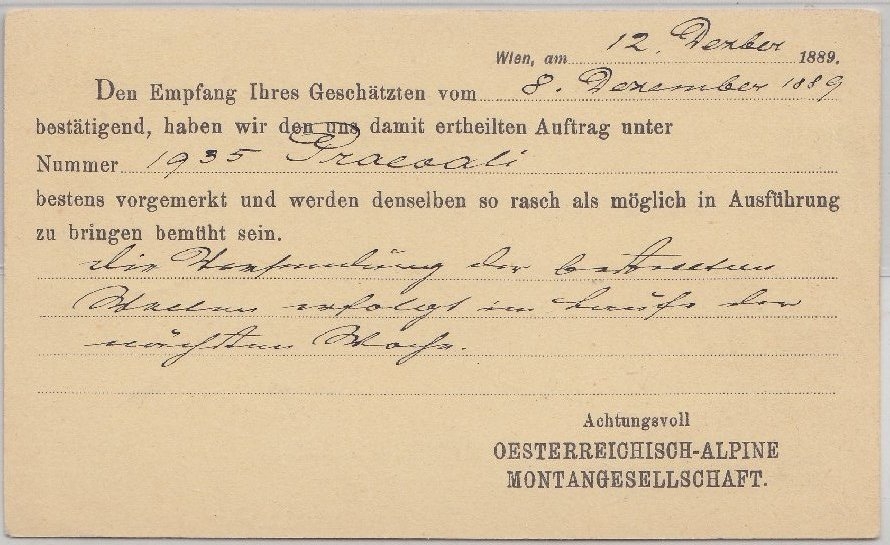 Wien, am 12. Dezber 1889.
Den Empfang Ihres Geschätzten vom 8. Dezember 1889
bestätigend, haben wir den uns damit ertheilten Auftrag unter
Nummer 1935 Praevali
bestens vorgemerkt und werden denselben so rasch als möglich in Ausführung
zu bringen bemüht sein.
Die Versendung der bestellten
erfolgt im Laufe der
nächsten Woche.
Achtungsvoll
OESTERREICHISCH-ALPINE
MONTANGESELLSCHAFT.